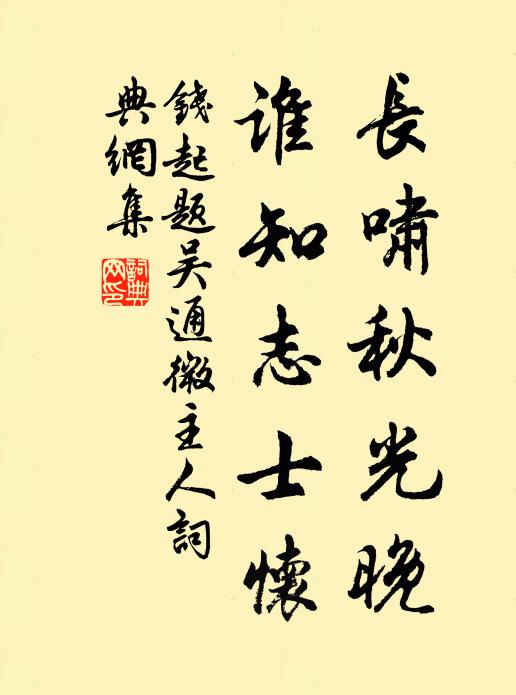 長嘯秋光晚
誰知志士懷
錢起題吴通微主人詞
典網集
詞典
网印